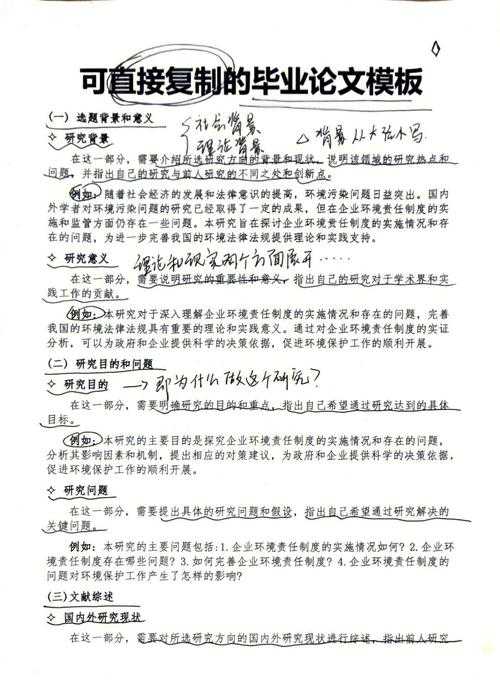 可直接复制的毕业论文模板
(一) 选题背景和意义
社会背景
理论背景
△ 背景从大话小写
✧ 研究背景
在这一部分，需要介绍所选研究方向的背景和现状，说明该领域的研究热点和
问题，并指出自己的研究与前人研究的不同之处和创新点。
例如：随着社会经济的发展和法律意识的提高，环境污染问题日益突出。国内
外学者对环境污染问题的研究已经取得了一定的成果，但在企业环境责任制度的实
施和监管方面仍存在一些问题。本研究旨在探讨企业环境责任制度的实施情况和存
在的问题，为进一步完善我国的环境法律法规提供理论和实践支持。
✧ 研究意义
理论和现实两个方面展开……
在这一部分，需要说明研究的重要性和意义，指出自己的研究对于学术界和实
践工作的贡献。
例如：本研究对于深入理解企业环境责任制度的实施情况和存在的问题，完善
我国的环境法律法规具有重要的理论和实践意义。通过对企业环境责任制度的实证
分析，可以为政府和企业提供科学的决策依据，促进环境保护工作的顺利开展。
(二) 研究目的和问题
✧ 研究目的 → 即为什么做这个研究？
在这一部分，需要明确研究的目的和重点，指出自己希望通过研究达到的具体
目标。
例如：本研究的主要目的是探究企业环境责任制度的实施情况和存在的问题，
分析其影响因素和机制，提出相应的对策建议，为政府和企业提供科学的决策依据，
促进环境保护工作的顺利开展。
✧ 研究问题
在这一部分，需要提出具体的研究问题和假设，指出自己希望通过研究解决的
关键问题。
例如：本研究的主要问题包括：1.企业环境责任制度的实施情况如何？2.企业环
境责任制度存在哪些问题？3.如何完善企业环境责任制度？4.企业环境责任制度的
问题对环境保护工作产生了怎样的影响？
(三)文献综述
✧ 国内外研究现状
在这一部分，需要对所选研究方向的国内外研究现状进行综述，指出前人研究